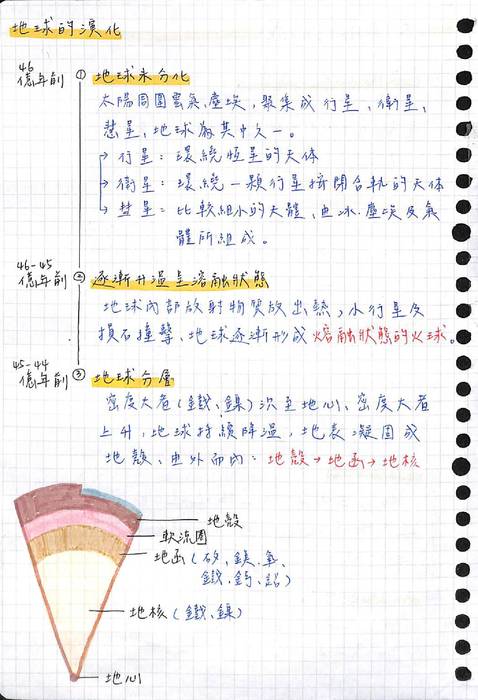 地球的演化
46
億年前 ① 地球未分化
太陽周圍雲氣、塵埃,聚集成行星、衛星、
慧星,地球為其中之一。
→ 行星:環繞恆星的天体
→ 衛星:環繞一顆行星按閉合軌的天体
→ 彗星:比較細小的天體,由冰、塵埃及氣
體所組成。
46-45
億年前 ② 逐漸升溫呈溶融狀態
地球內部放射物質放出熱,小行星及
損石撞擊,地球逐漸形成熔融狀態的火球。
45-44
億年前 ③ 地球分層
密度大者(鐵、鎳)沉至地心、密度大者
上升,地球持續降溫,地表凝固成
地殼,由外而內:地殼→地函→地核
地殼
軟流圈
地函(矽、鎂、氧、
鐵、鈣、鋁)
地核(鐵、鎳)
地心